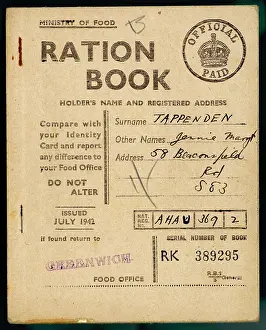 MINISTRY OF FOOD
B
OFFICIAL
PAID
RATION
BOOK
HOLDER'S NAME AND REGISTERED ADDRESS
Compare with
your Identity
Card and report
any difference to
your Food Office
DO NOT
ALTER
Surname TAPPENDEN
Other Names Jennie Margt
Address 58 Beaconsfield
Rd
SE3
ISSUED
JULY 1942
NAT.
REG.
No.
AHAU 369 2
If found return to
GREENWICH
FOOD OFFICE
SERIAL NUMBER OF BOOK
RK 389295
R.B.1
General